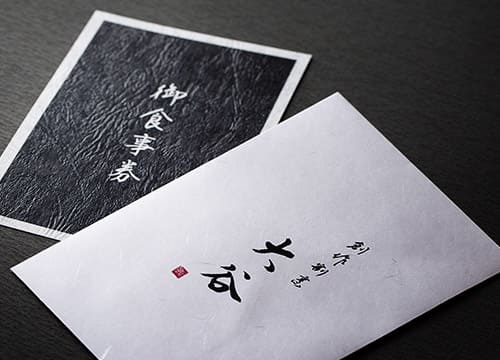 御食事券
創作割烹
大谷